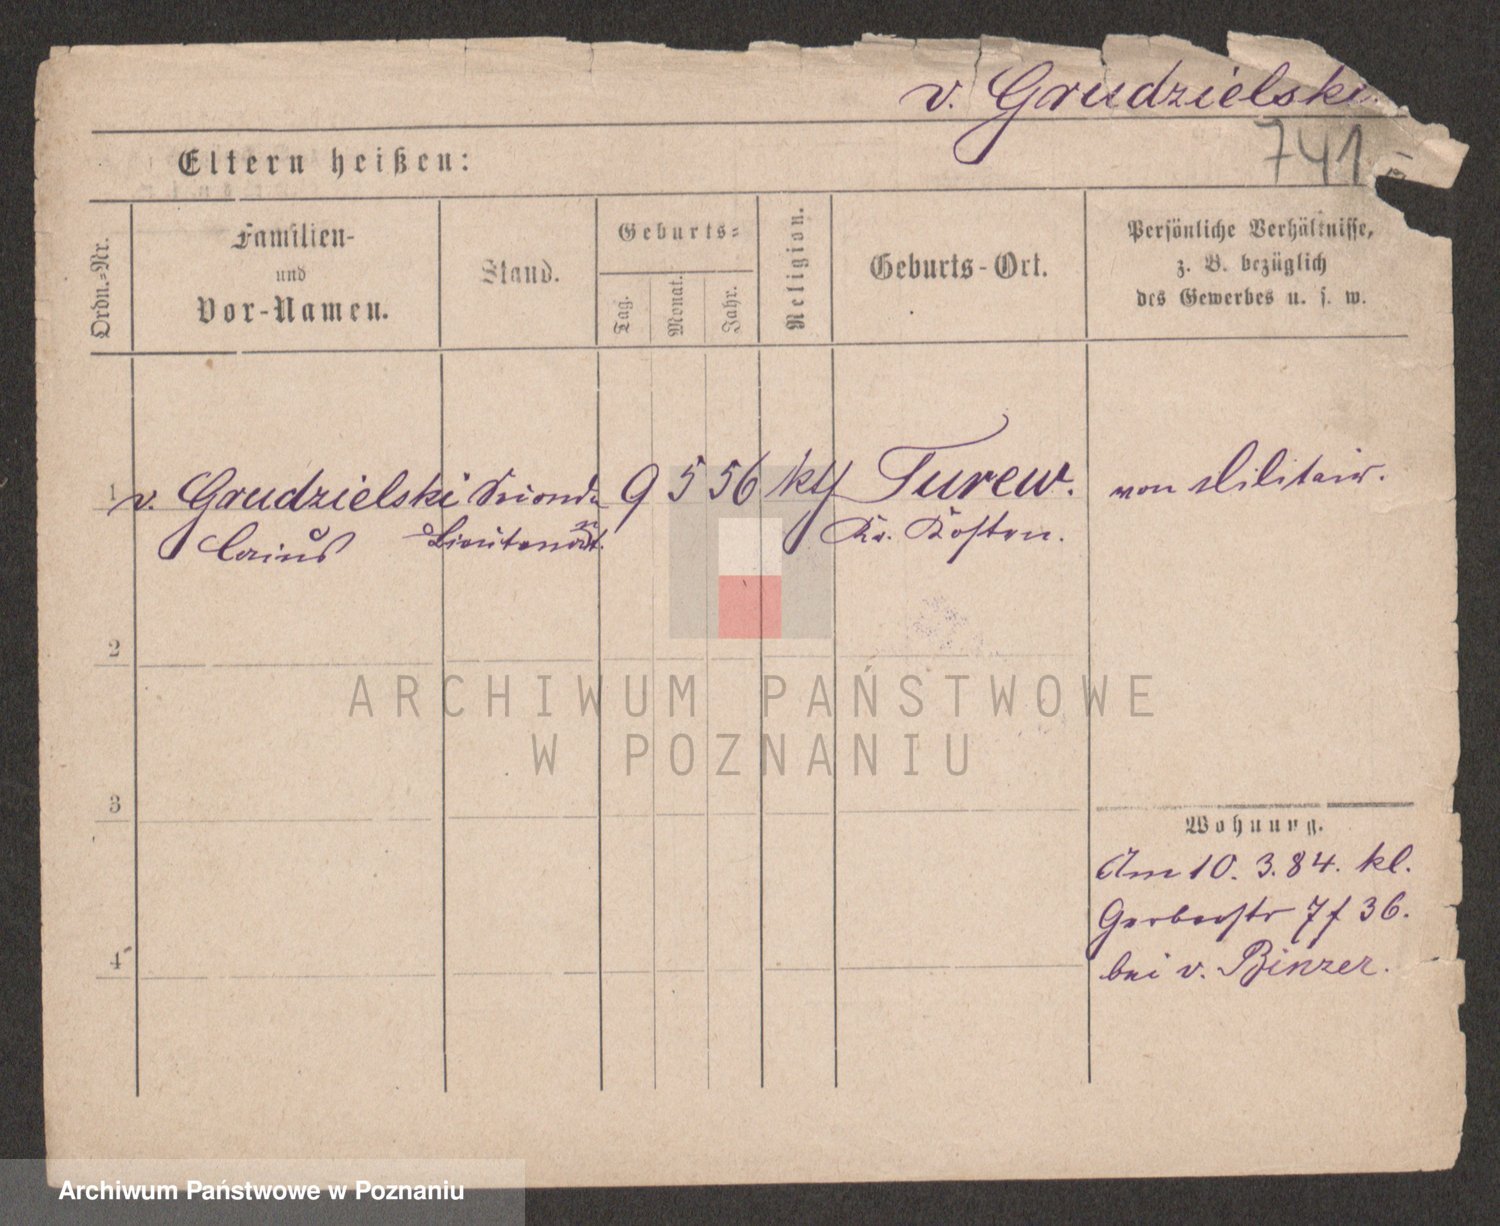 v. Grudzielski
741
Eltern heißen:
Ordn.-Nr.
Familien-
und
Vor-Namen.
Stand.
Geburts-
Tag.
Monat.
Jahr.
Religion.
Geburts-Ort.
Persönliche Verhältnisse,
z. B. bezüglich
des Gewerbes u. s. w.
1 v. Grudzielski Seconde 9 5 56 kth Turew. von Militair.
Lieutenant. Kr. Kosten.
2
3
4
Wohnung.
Am 10. 3. 84. kl.
Gerberstr 7f 36.
bei v. Binzer.
ARCHIWUM PAŃSTWOWE
W POZNANIU
Archiwum Państwowe w Poznaniu